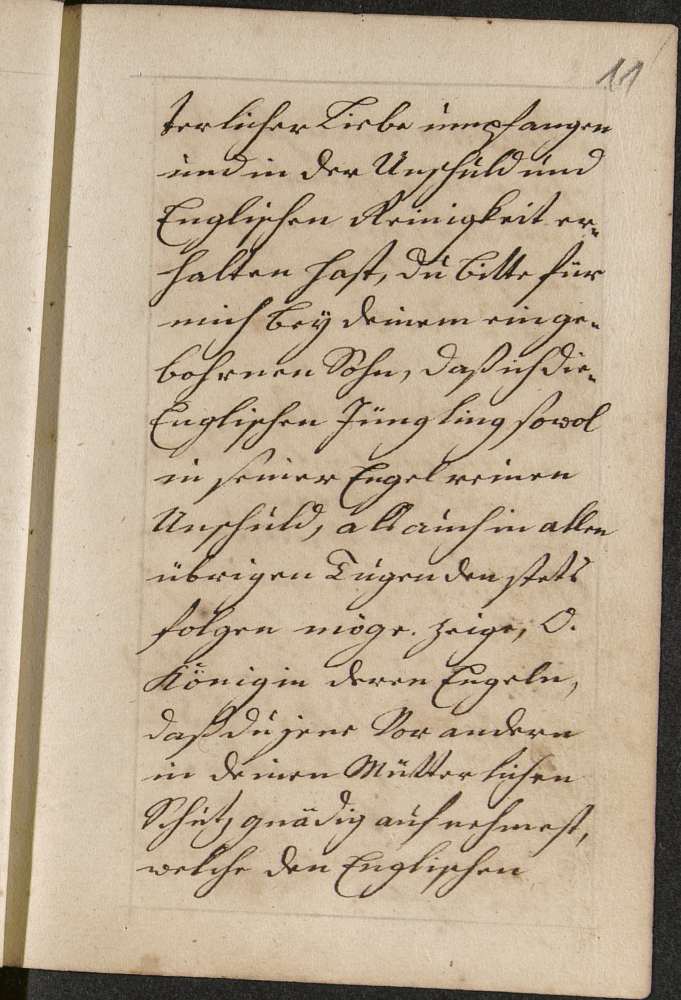 11
terlicher Liebe umpfangen
und in der Unschuld und
Englischen Reinigkeit er-
halten hast, du bitte für
mich bey deinem einge-
bohrnen Sohn, daß ich die-
Englischen Jüngling sowol
in seiner Engelreinen
Unschuld, als auch in allen
übrigen Tugenden stets
folgen möge. Zeige, O.
Königin deren Engeln,
daß du jene Vor andern
in deinen Mütterlichen
Schutz gnädig aufnehmest,
welche den Englischen